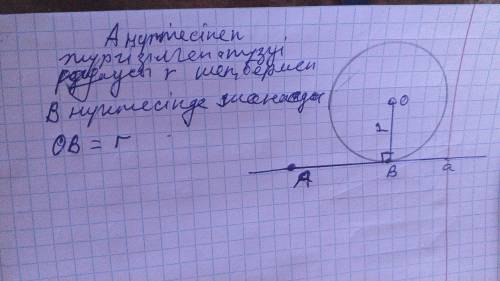 А нүктесінен
жүргізілген түзуі
радиусы r шеңбермен
В нүктесінде жанасады
OB = r
O
1
A
B
a